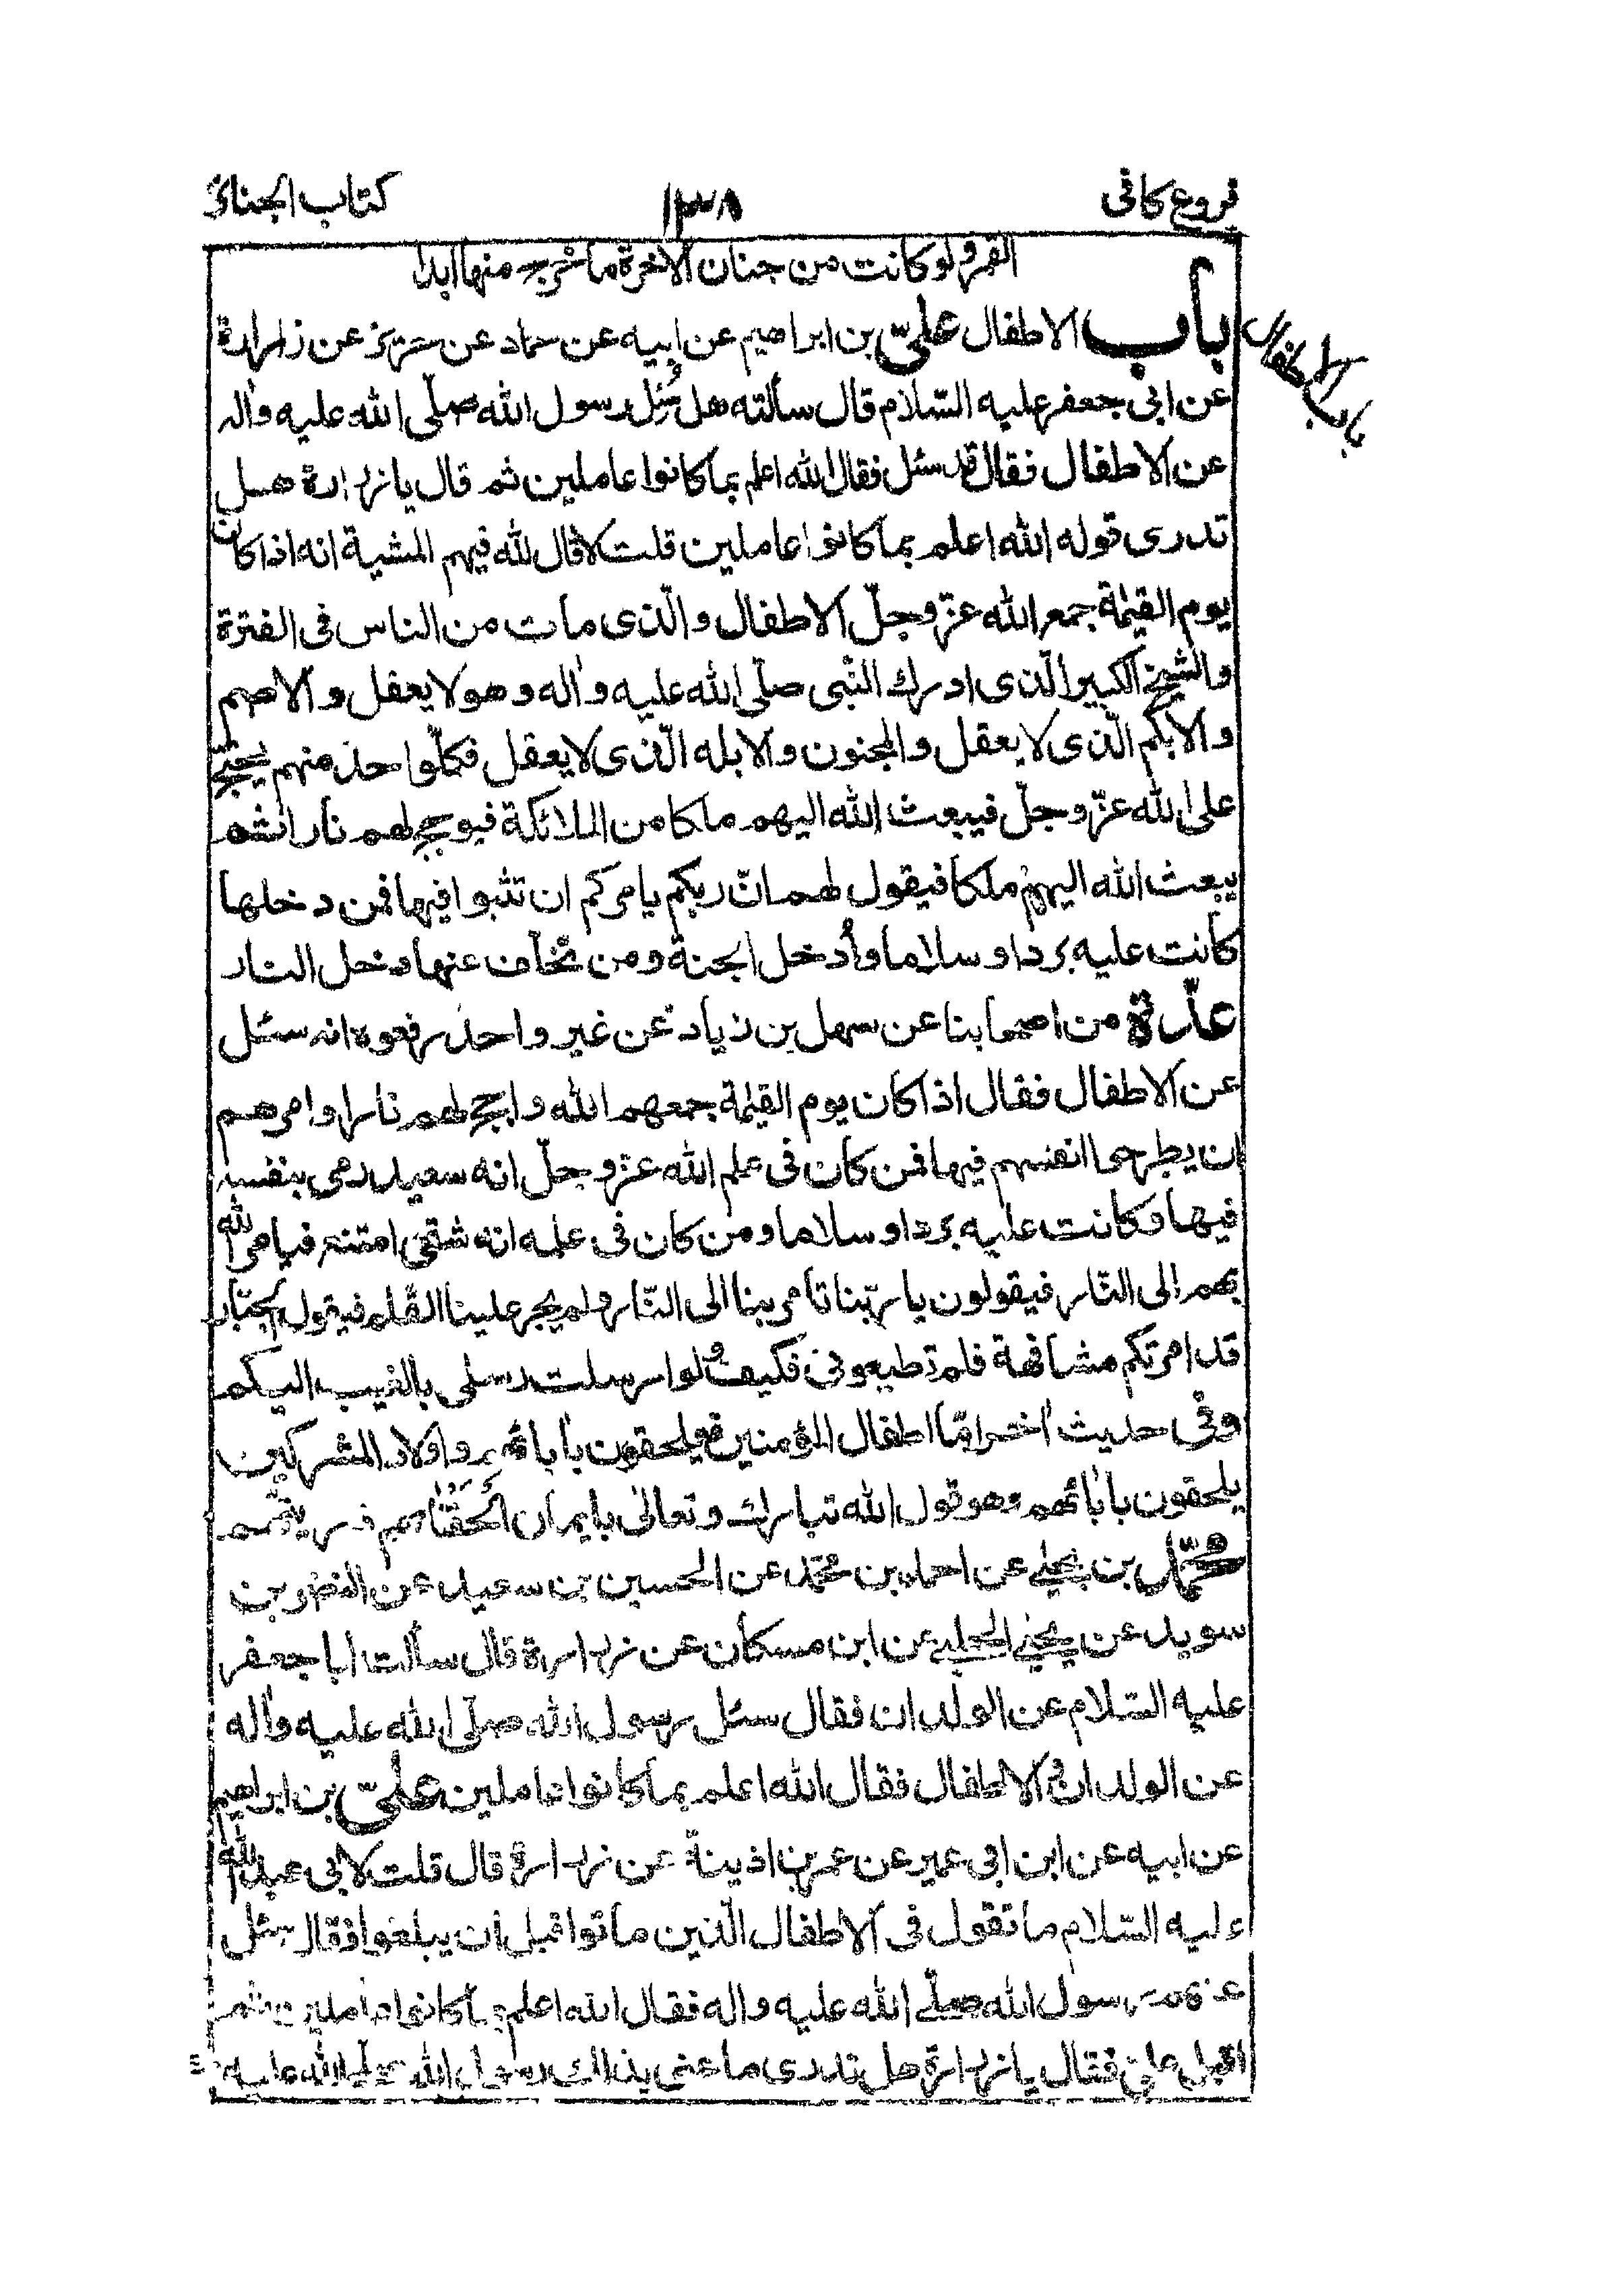 فروع کافی
۱۳۸
کتاب الجنائز
القمر ولو کانت من جنان الاخرة ما خرج منها ابدا
باب الاطفال علیّ بن ابراهیم عن ابیه عن حماد عن حریز عن زرارة
باب الاطفال
عن ابی جعفر علیه السّلام قال سألته هل سُئِل رسول الله صلّی الله علیه واٰله
عن الاطفال فقال قد سئل فقال الله اعلم بما کانوا عاملین ثم قال یا زرارة هل
تدری قوله الله اعلم بما کانوا عاملین قلت لا قال لله فیهم المشیة انه اذا کان
یوم القیٰمة جمع الله عزّ وجلّ الاطفال والّذی مات من الناس فی الفترة
والشیخ الکبیر الّذی ادرک النّبی صلّی الله علیه واٰله وهو لا یعقل والاصم
والابکم الّذی لا یعقل والمجنون والابله الّذی لا یعقل فکلّ واحد منهم یحتج
علی الله عزّ وجلّ فیبعث الله الیهم ملکا من الملائکة فیوجج لهم نارا ثم
یبعث الله الیهم ملکا فیقول لهم انّ ربکم یامرکم ان تثبوا فیها فمن دخلها
کانت علیه بردا وسلاما وأدخل الجنة ومن تخلف عنها دخل النار
عدّة من اصحابنا عن سهل بن زیاد عن غیر واحد رفعوه انه سئل
عن الاطفال فقال اذا کان یوم القیٰمة جمعهم الله واجج لهم نارا وامرهم
ان یطرحوا انفسهم فیها فمن کان فی علم الله عزّ وجلّ انه سعید رمی بنفسه
فیها وکانت علیه بردا وسلاما ومن کان فی علمه انه شقی امتنع فیامر الله
بهم الی النّار فیقولون یا ربّنا تامر بنا الی النّار ولم یجر علینا القلم فیقول الجبّار
قد امرتکم مشافهة فلم تطیعونی فکیف ولو ارسلت رسلی بالغیب الیکم
وفی حدیث اٰخر امّا اطفال المؤمنین فیلحقون باٰبائهم واولاد المشرکین
یلحقون باٰبائهم وهو قول الله تبارک وتعالیٰ بایمان اَلحَقْنَا بهم ذریتهم
محمّد بن یحیٰی عن احمد بن محمّد عن الحسین بن سعید عن النضر بن
سوید عن یحیٰی الحلبی عن ابن مسکان عن زرارة قال سألت ابا جعفر
علیه السّلام عن الولدان فقال سئل رسول الله صلّی الله علیه واٰله
عن الولدان والاطفال فقال الله اعلم بما کانوا عاملین علیّ بن ابراهیم
عن ابیه عن ابن ابی عمیر عن عمر بن اذینة عن زرارة قال قلت لابی عبد الله
علیه السّلام ما تقول فی الاطفال الّذین ماتوا قبل ان یبلغوا فقال سئل
عنهم رسول الله صلّی الله علیه واٰله فقال الله اعلم بما کانوا عاملین ثم
اقبل علیّ فقال یا زرارة هل تدری ما عنی بذلك رسول الله صلّی الله علیه